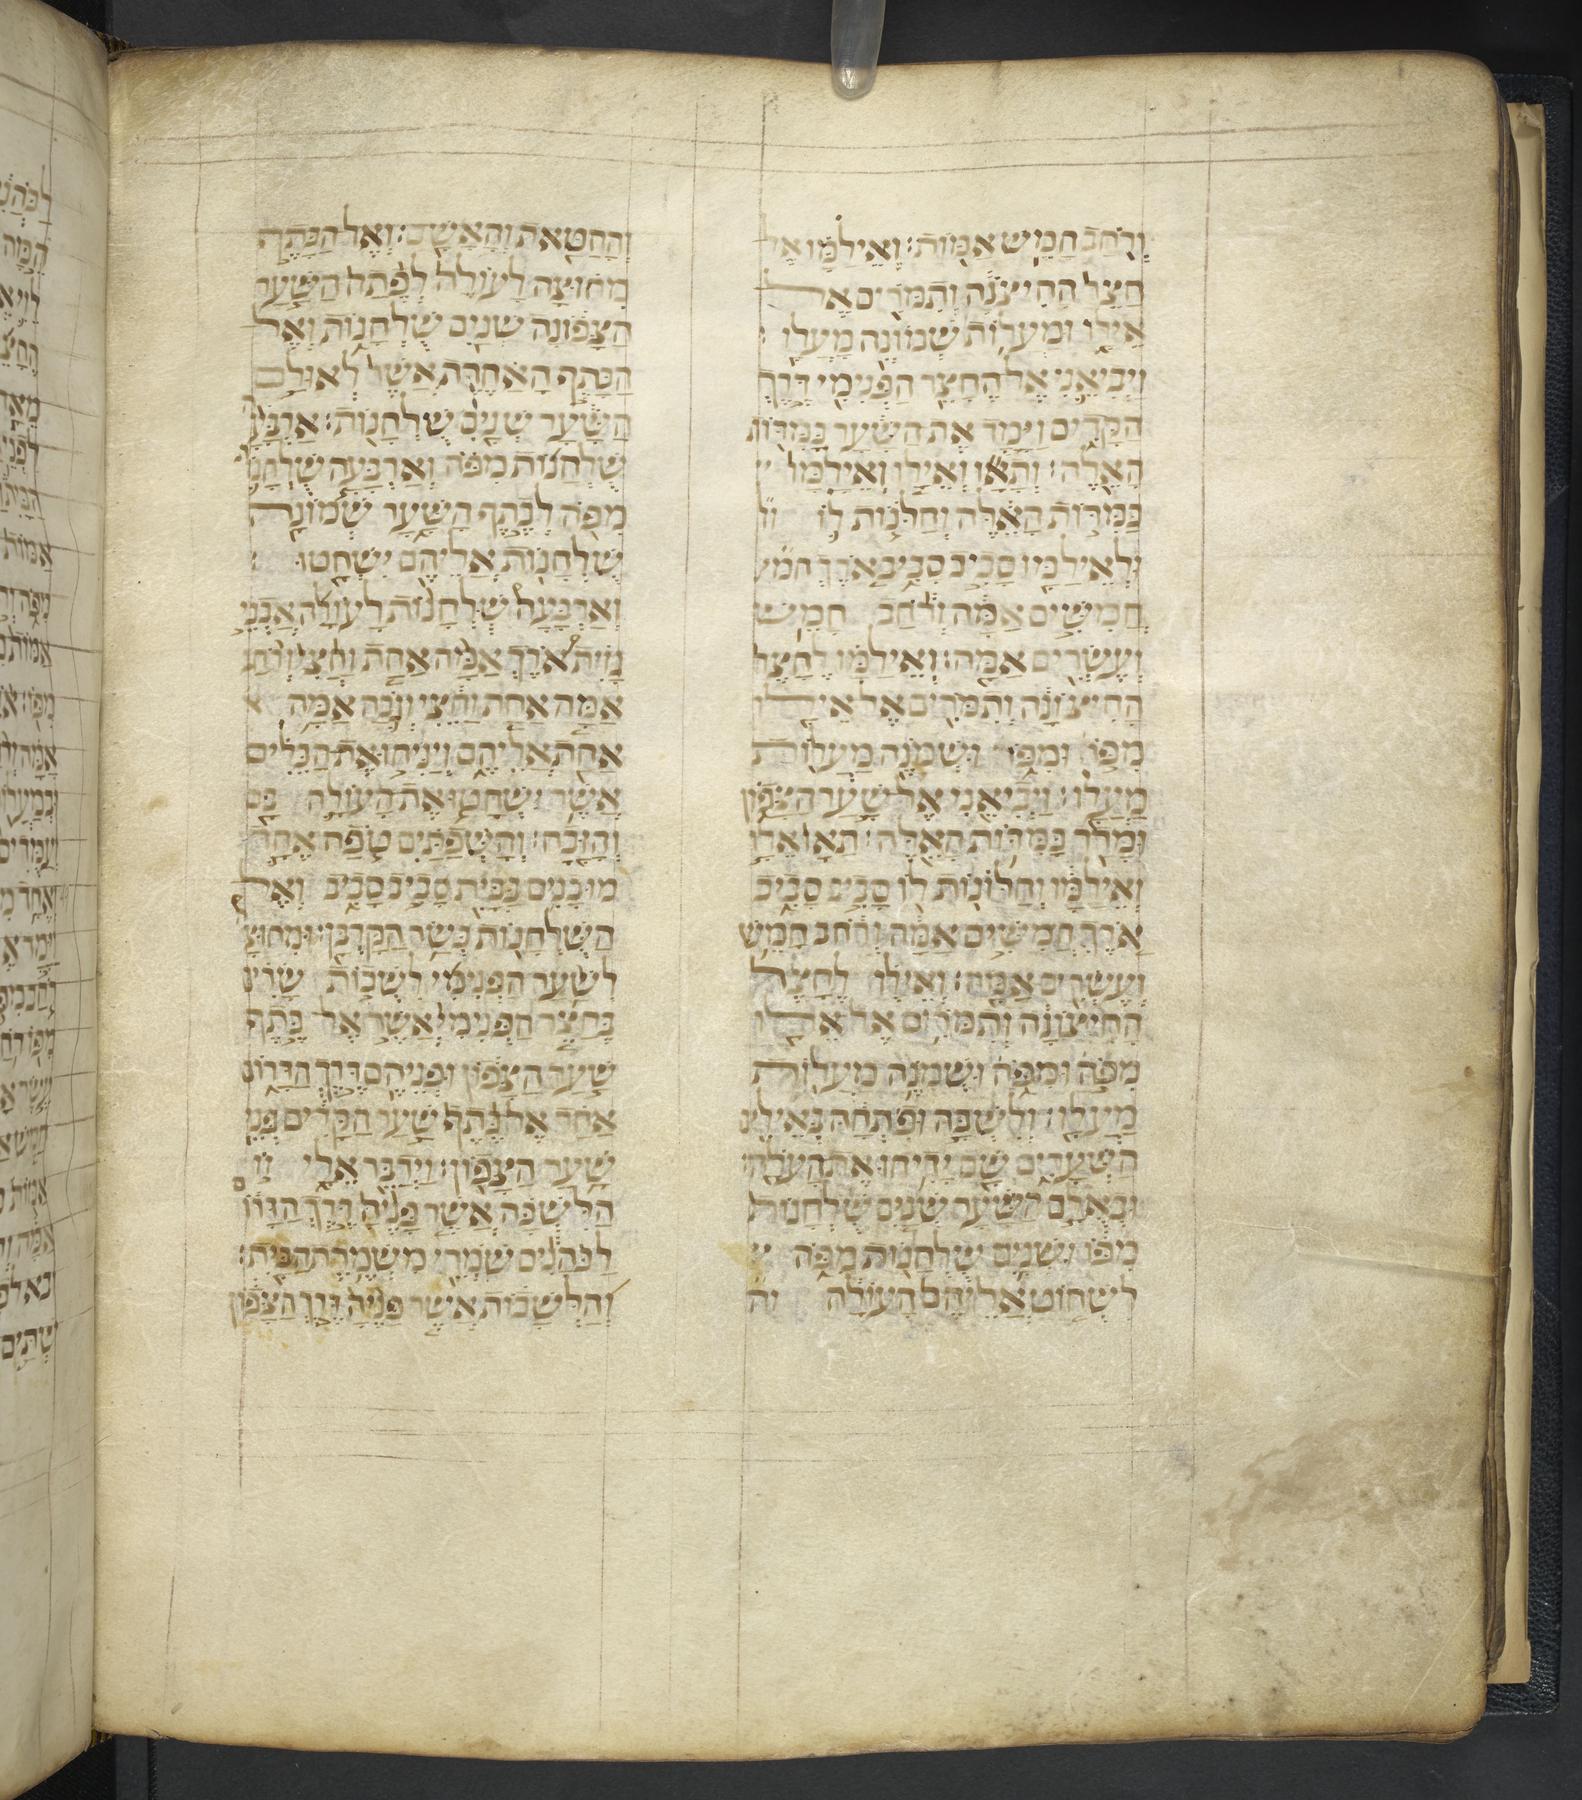 ורחב חמש אמות: ואילמו אל
חצר החיצונה ותמרים אל
אילו ומעלות שמונה מעלו
ויביאני אל החצר הפנימי דרך
הקדים וימד את השער כמדות
האלה: ותאו ואילו ואילמו
כמדות האלה וחלנות לו
ולאילמו סביב סביב ארך
חמישים אמה ורחב חמיש
ועשרים אמה: ואילמו לחצר
החיצונה ותמרים אל אילו
מפו ומפו ושמנה מעלות
מעלו: ויביאני אל שער הצפון
ומדד כמדות האלה: תאו אלו
ואילמו וחלונות לו סביב סביב
ארך חמישים אמה ורחב חמש
ועשרים אמה: ואילו לחצר
החיצונה ותמרים אל אילו
מפה ומפה ושמנה מעלות
מעלו: ולשכה ופתחה באילים
השערים שם ידיחו את העלה:
ובאלם השער שנים שלחנות
מפו ושנים שלחנות מפה
לשחוט אליהם העולה
והחטאת והאשם: ואל הכתף
מחוצה לעולה לפתח השער
הצפונה שנים שלחנות ואל
הכתף האחרת אשר לאולם
השער שנים שלחנות: ארבעה
שלחנות מפה וארבעה שלחנות
מפה לכתף השער שמונה
שלחנות אליהם ישחטו
וארבעה שלחנות לעולה אבני
גזית ארך אמה אחת וחצי ורחב
אמה אחת וחצי וגבה אמה
אחת אליהם ויניחו את הכלים
אשר ישחטו את העולה בם
והזבח: והשפתים טפח אחד
מוכנים בבית סביב סביב ואל
השלחנות בשר הקרבן: ומחוצה
לשער הפנימי לשכות שרים
בחצר הפנימי אשר אל כתף
שער הצפון ופניהם דרך הדרום
אחד אל כתף שער הקדים פני
שער הצפון: וידבר אלי זו
הלשכה אשר פניה דרך הדרום
לכהנים שמרי משמרת הבית:
והלשכות אשר פניה דרך הצפון